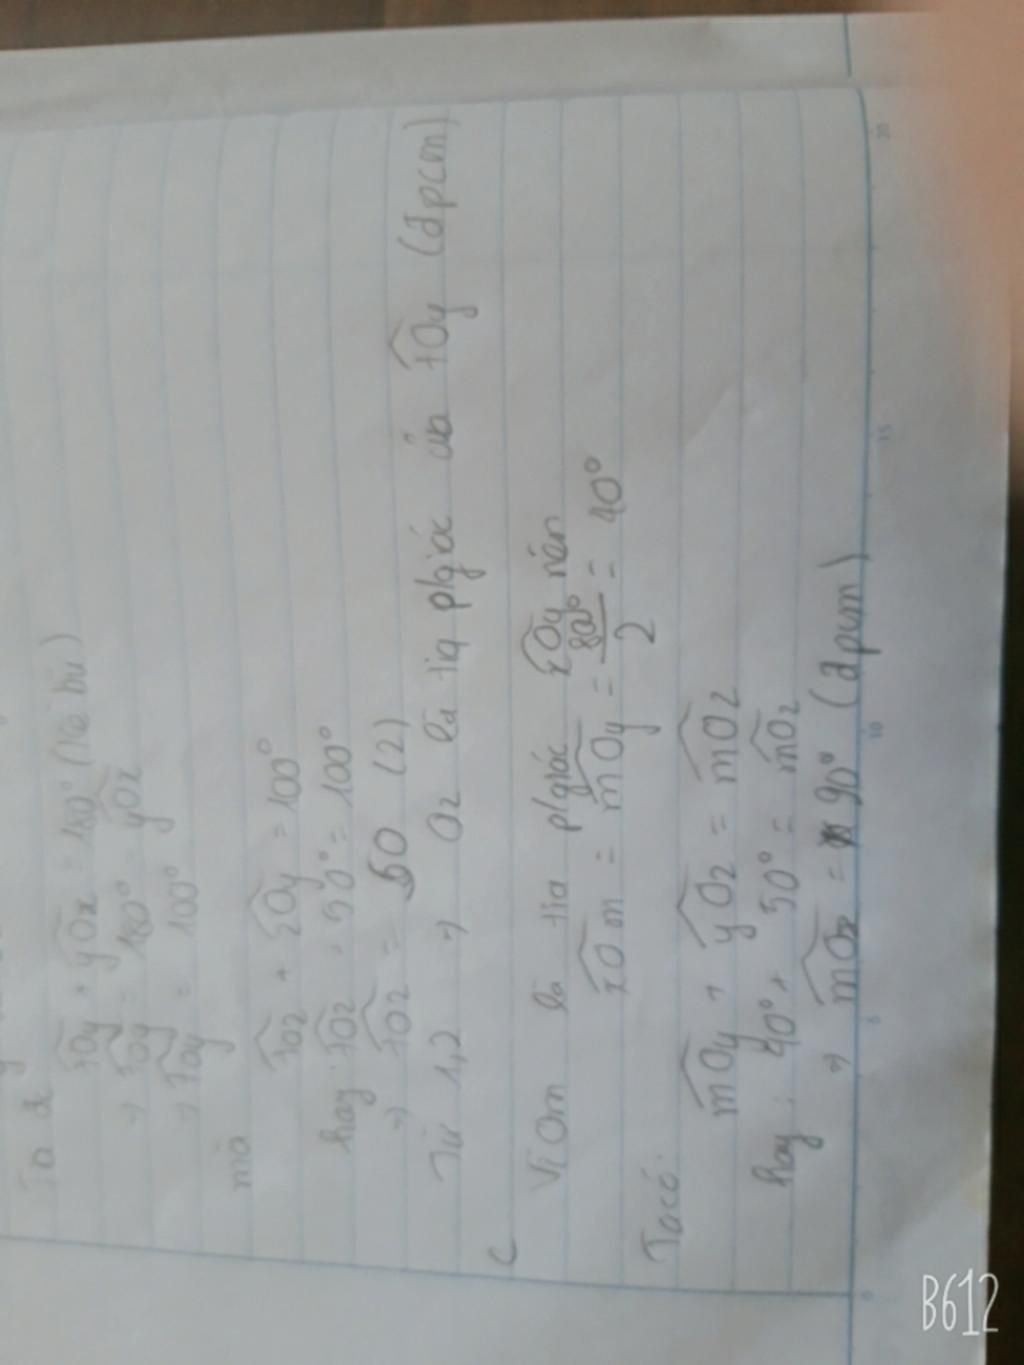 Ta có
tOy + yOx = 180° (kề bù)
=> tOy = 180° - yOx
=> tOy = 100°
mà
tOz + zOy = 100°
hay: tOz + 50° = 100°
=> tOz = 50 (2)
Từ 1,2 => Oz là tia p/giác của tOy (đpcm)
c
Vì Om là tia p/giác xOy nên
xOm = mOy = 80°/2 = 40°
Ta có:
mOy + yOz = mOz
hay: 40° + 50° = mOz
=> mOz = 90° (đpcm)
20
15
10
5
0
B612